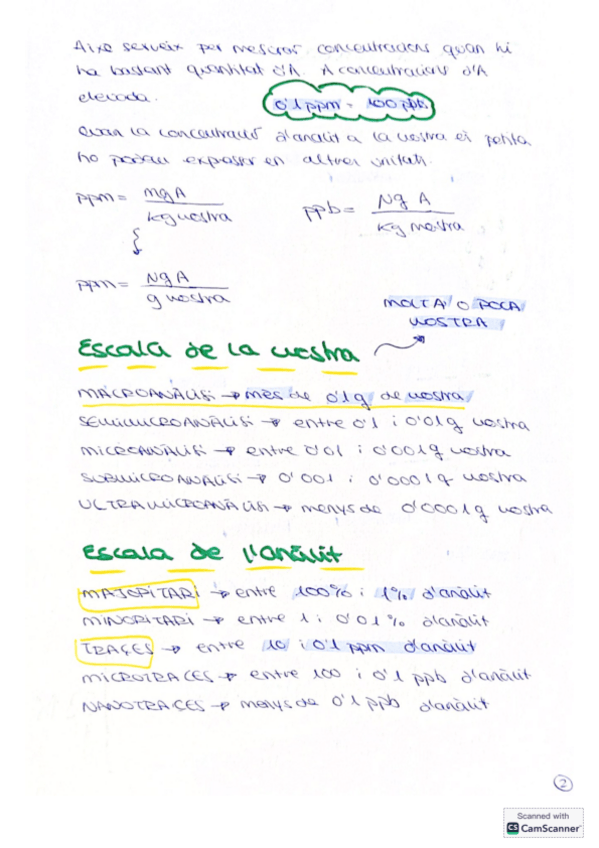 Aixo serveix per mesurar concentracions quan hi
ha bastant quantitat d'A. A concentracions d'A
elevada.
0'1 ppm - 100 ppb
Quan la concentració d'analit a la mostra és petita
ho podem expressar en altres unitats.
ppm = mg A / kg mostra
ppb = Ng A / Kg mostra
ppm = Ng A / g mostra
MOLTA O POCA
MOSTRA
Escala de la mostra
MACROANÀLISI → més de 0'1g de mostra
SEMIMICROANÀLISI → entre 0'1 i 0'01g mostra
MICROANÀLISI → entre 0'01 i 0'001g mostra
SUBMICROANÀLISI → 0'001 i 0'0001g mostra
ULTRAMICROANÀLISI → menys de 0'0001g mostra
Escala de l'anàlit
MAJORITARI → entre 100% i 1% d'anàlit
MINORITARI → entre 1 i 0'01% d'anàlit
TRACES → entre 10 i 0'1 ppm d'anàlit
MICROTRACES → entre 100 i 0'1 ppb d'anàlit
NANOTRACES → menys de 0'1 ppb d'anàlit
2
Scanned with
CS CamScanner